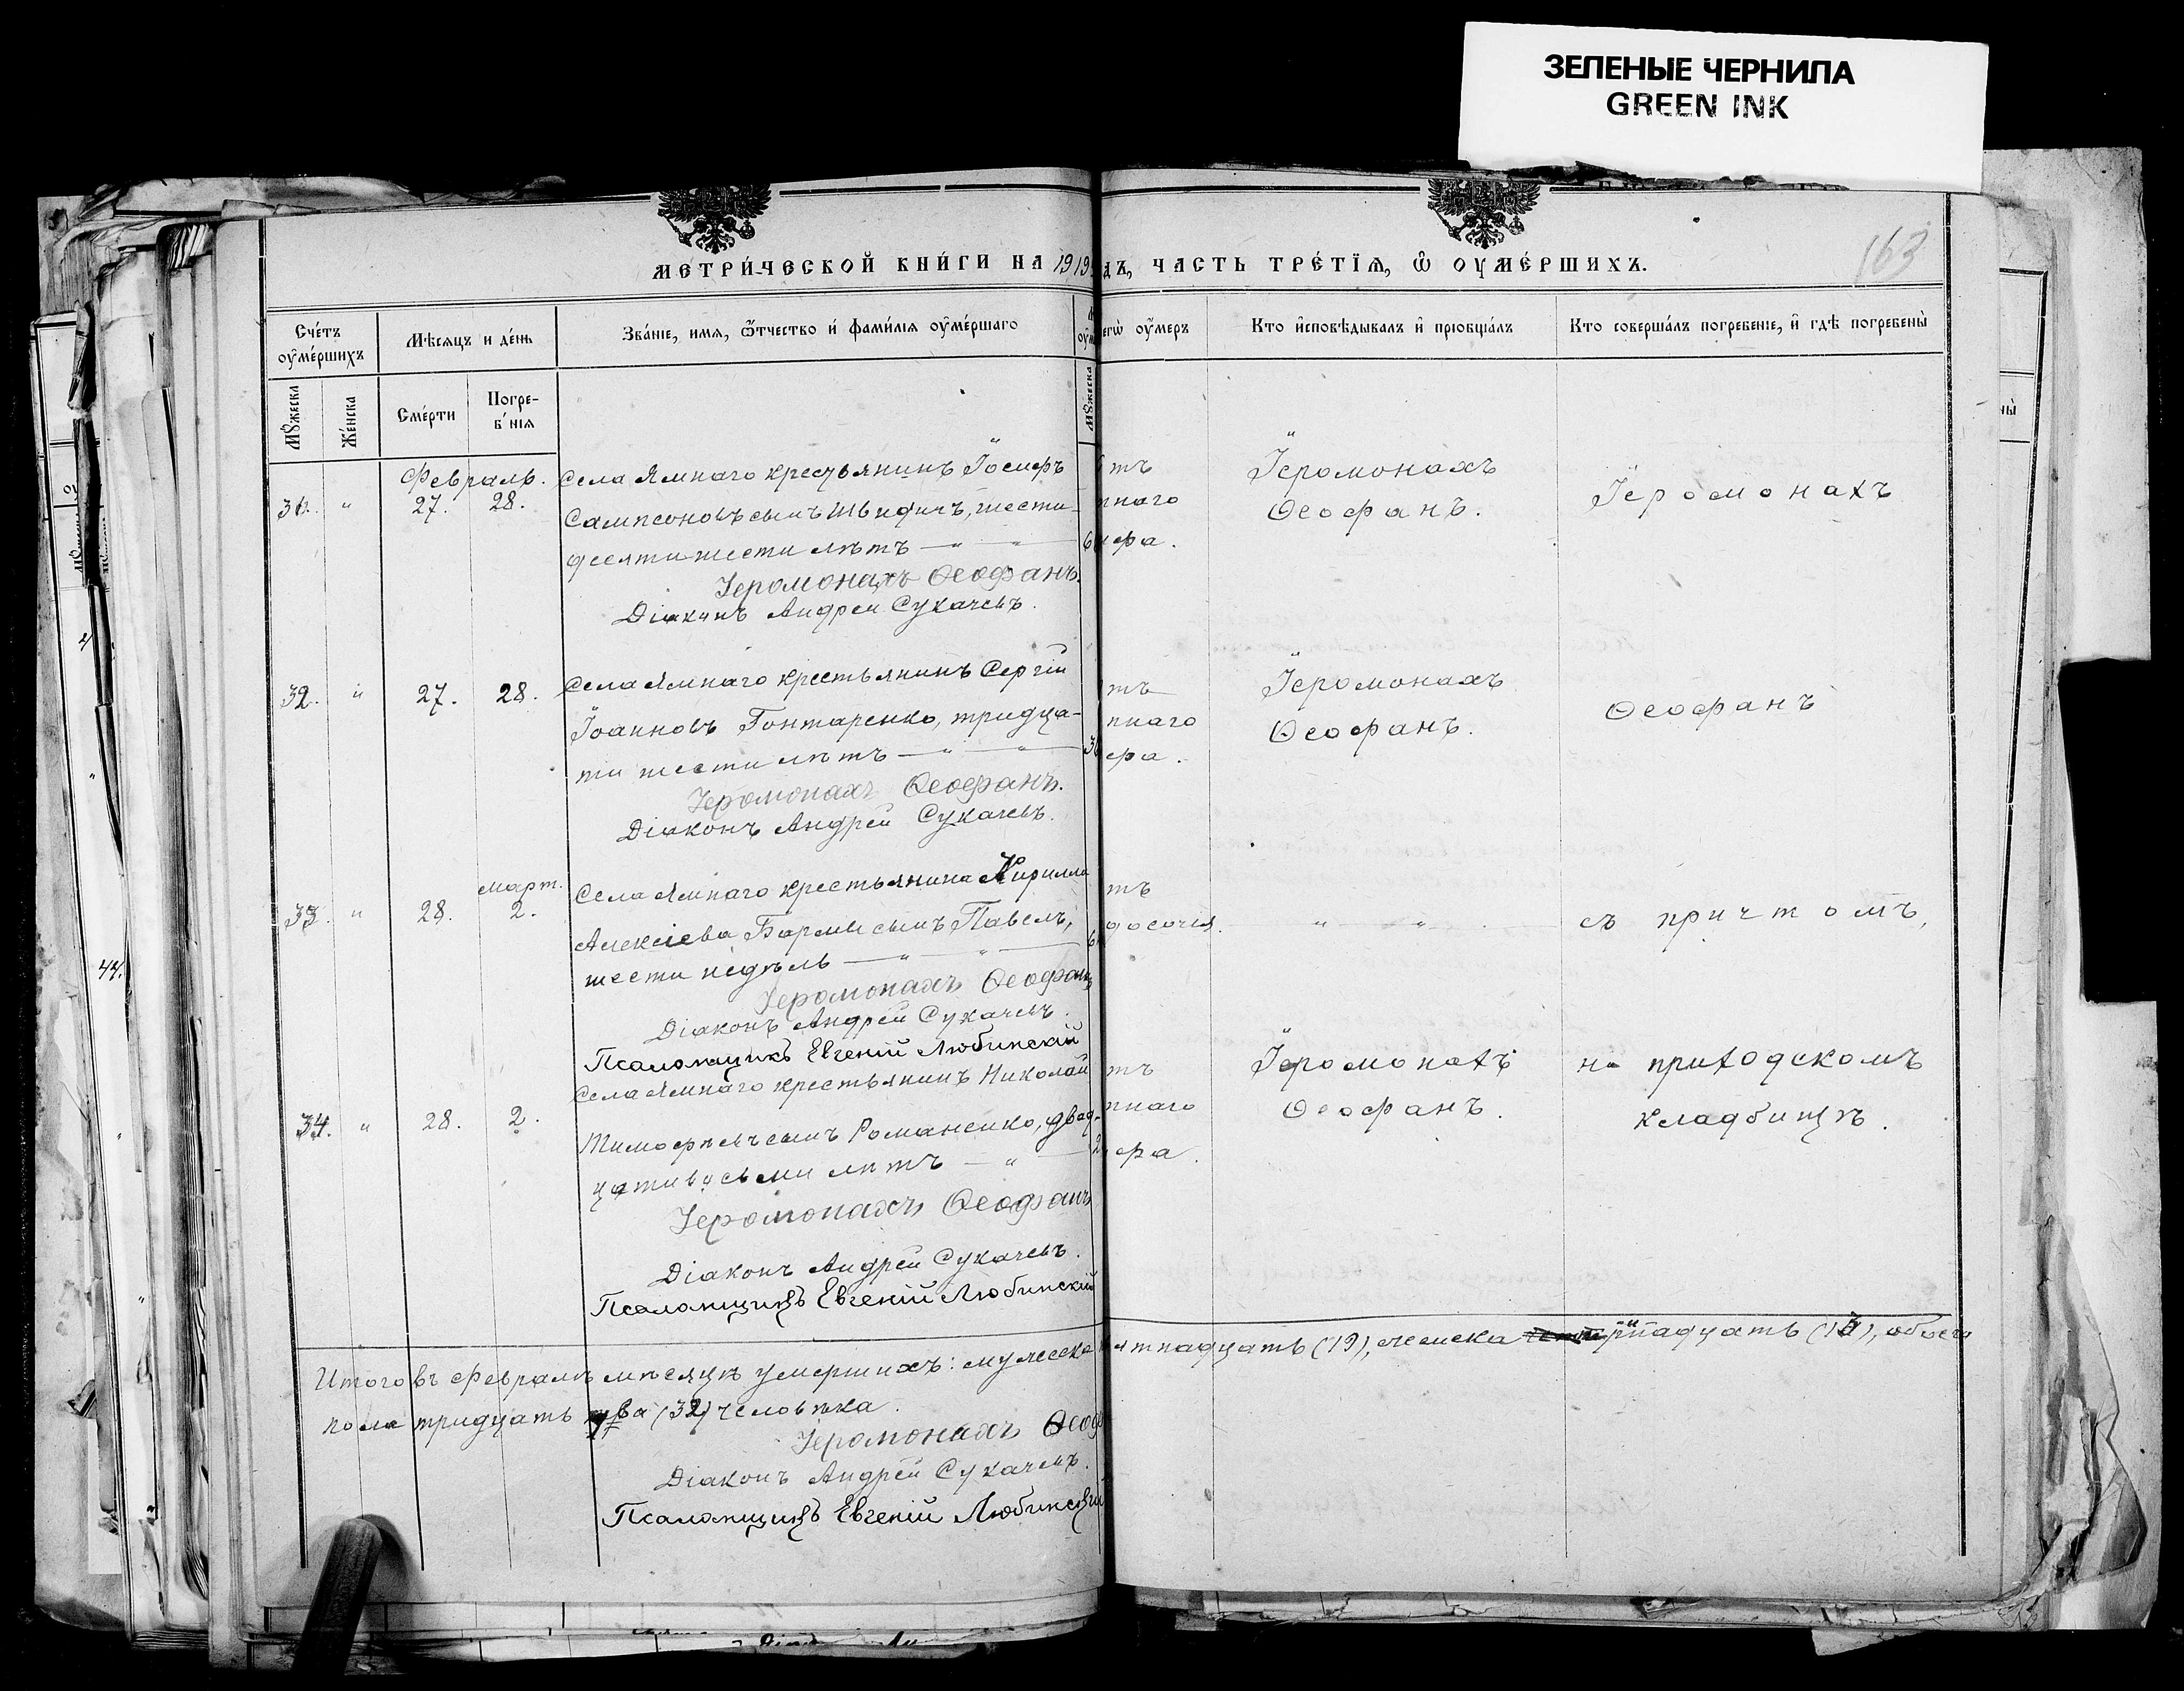 ЗЕЛЕНЫЕ ЧЕРНИЛА
GREEN INK
163
МЕТРИ́ЧЕСКОЙ КНИ́ГИ НА 1919
дъ, ЧАСТЬ ТРЕ́ТІѦ, Ѽ ОУМЕ́РШИХЪ.
Сче́тъ оу҆ме́ршихъ
Мѣ́сѧцъ и де́нь
Зва́нїе, имѧ, ѿтчество и҆ фами́лїѧ оу҆ме́ршагѡ
егѡ̀ оу҆́меръ
Кто и҆сповѣ́дывалъ и҆ прїобща́лъ
Кто соверша́лъ погребе́нїе, и҆ гдѣ̀ погребены̀
Мꙋ́жеска
Же́нска
Сме́рти
Погре-
б́нїѧ
Мꙋ́жеска
Февраль.
31. " 27. 28.
Села Ямнаго крестьянинъ Іосифъ
Сампсоновъ сынъ Швидичъ, шести-
десяти шести лѣтъ — " — " —
Іеромонахъ Ѳеофанъ.
Діаконъ Андрей Сукачевъ.
тъ
пнаго
фа.
Іеромонахъ
Ѳеофанъ.
Іеромонахъ
32. " 27. 28.
Села Ямнаго крестьянинъ Сергій
Іоанновъ Гонтаренко, тридца-
ти шести лѣтъ — " — " — 36
Іеромонахъ Ѳеофанъ.
Діаконъ Андрей Сукачевъ.
тъ
пнаго
фа.
Іеромонахъ
Ѳеофанъ.
Ѳеофанъ
33. " 28. март. 2.
Села Ямнаго крестьянина Кирилла
Алексіева Бармы сынъ Павелъ,
шести недѣль — " — " —
Іеромонахъ Ѳеофанъ
Діаконъ Андрей Сукачевъ.
Псаломщикъ Евгеній Любинскій
тъ
" — " —
съ причтомъ,
34. " 28. 2.
Села Ямнаго крестьянинъ Николай
Тимофѣевъ сынъ Романенко, двад-
цати восьми лѣтъ — " —
Іеромонахъ Ѳеофанъ
Діаконъ Андрей Сукачевъ.
Псаломщикъ Евгеній Любинскій
тъ
пнаго
фа.
Іеромонахъ
Ѳеофанъ.
на приходскомъ
кладбищѣ.
Итого въ Февралѣ мѣсяцѣ умершихъ: мужеска
ятнадцать (19), женска (13), обоего
пола тридцать два (32) человѣка.
Іеромонахъ Ѳеоф
Діаконъ Андрей Сукачевъ.
Псаломщикъ Евгеній Любинскій
44.